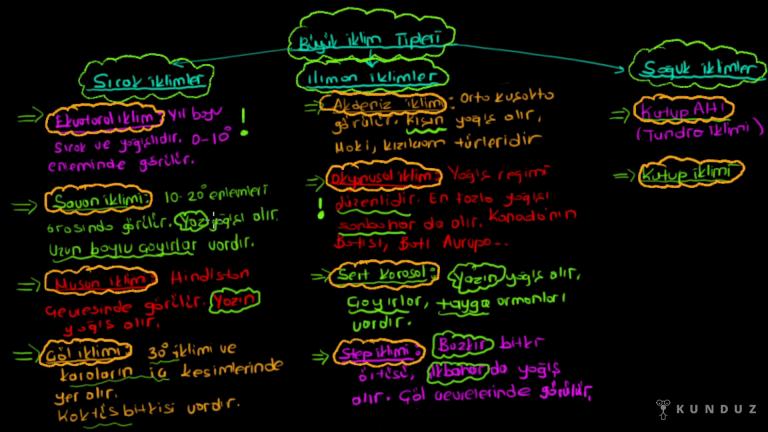 Büyük İklim Tipleri
Sıcak iklimler
Ekvatoral iklim: Yıl boyu
sıcak ve yağışlıdır. 0-10°
enleminde görülür.
!
Savan iklimi: 10-20° enlemleri
arasında görülür. Yaz yağışı alır.
Uzun boylu çayırlar vardır.
Muson iklimi: Hindistan
çevresinde görülür. Yazın
yağış alır.
Çöl iklimi: 30° iklimi ve
karaların iç kesimlerinde
yer alır.
Kaktüs bitkisi vardır.
Ilıman iklimler
Akdeniz iklim: Orta kuşakta
görülür. Kışın yağış alır,
Maki, kızılçam türleridir
Okyanusal iklim: Yağış rejimi
! düzenlidir. En fazla yağışı
sonbahar da alır. Kanada'nın
Batısı, Batı Avrupa...
Sert karasal: Yazın yağış alır,
Çayırlar, tayga ormanları
vardır.
Step iklimi: Bozkır bitki
örtüsü, ilkbahar da yağış
alır. Çöl çevrelerinde görülür.
Soğuk iklimler
Kutup Altı
(Tundra iklimi)
Kutup iklimi
KUNDUZ